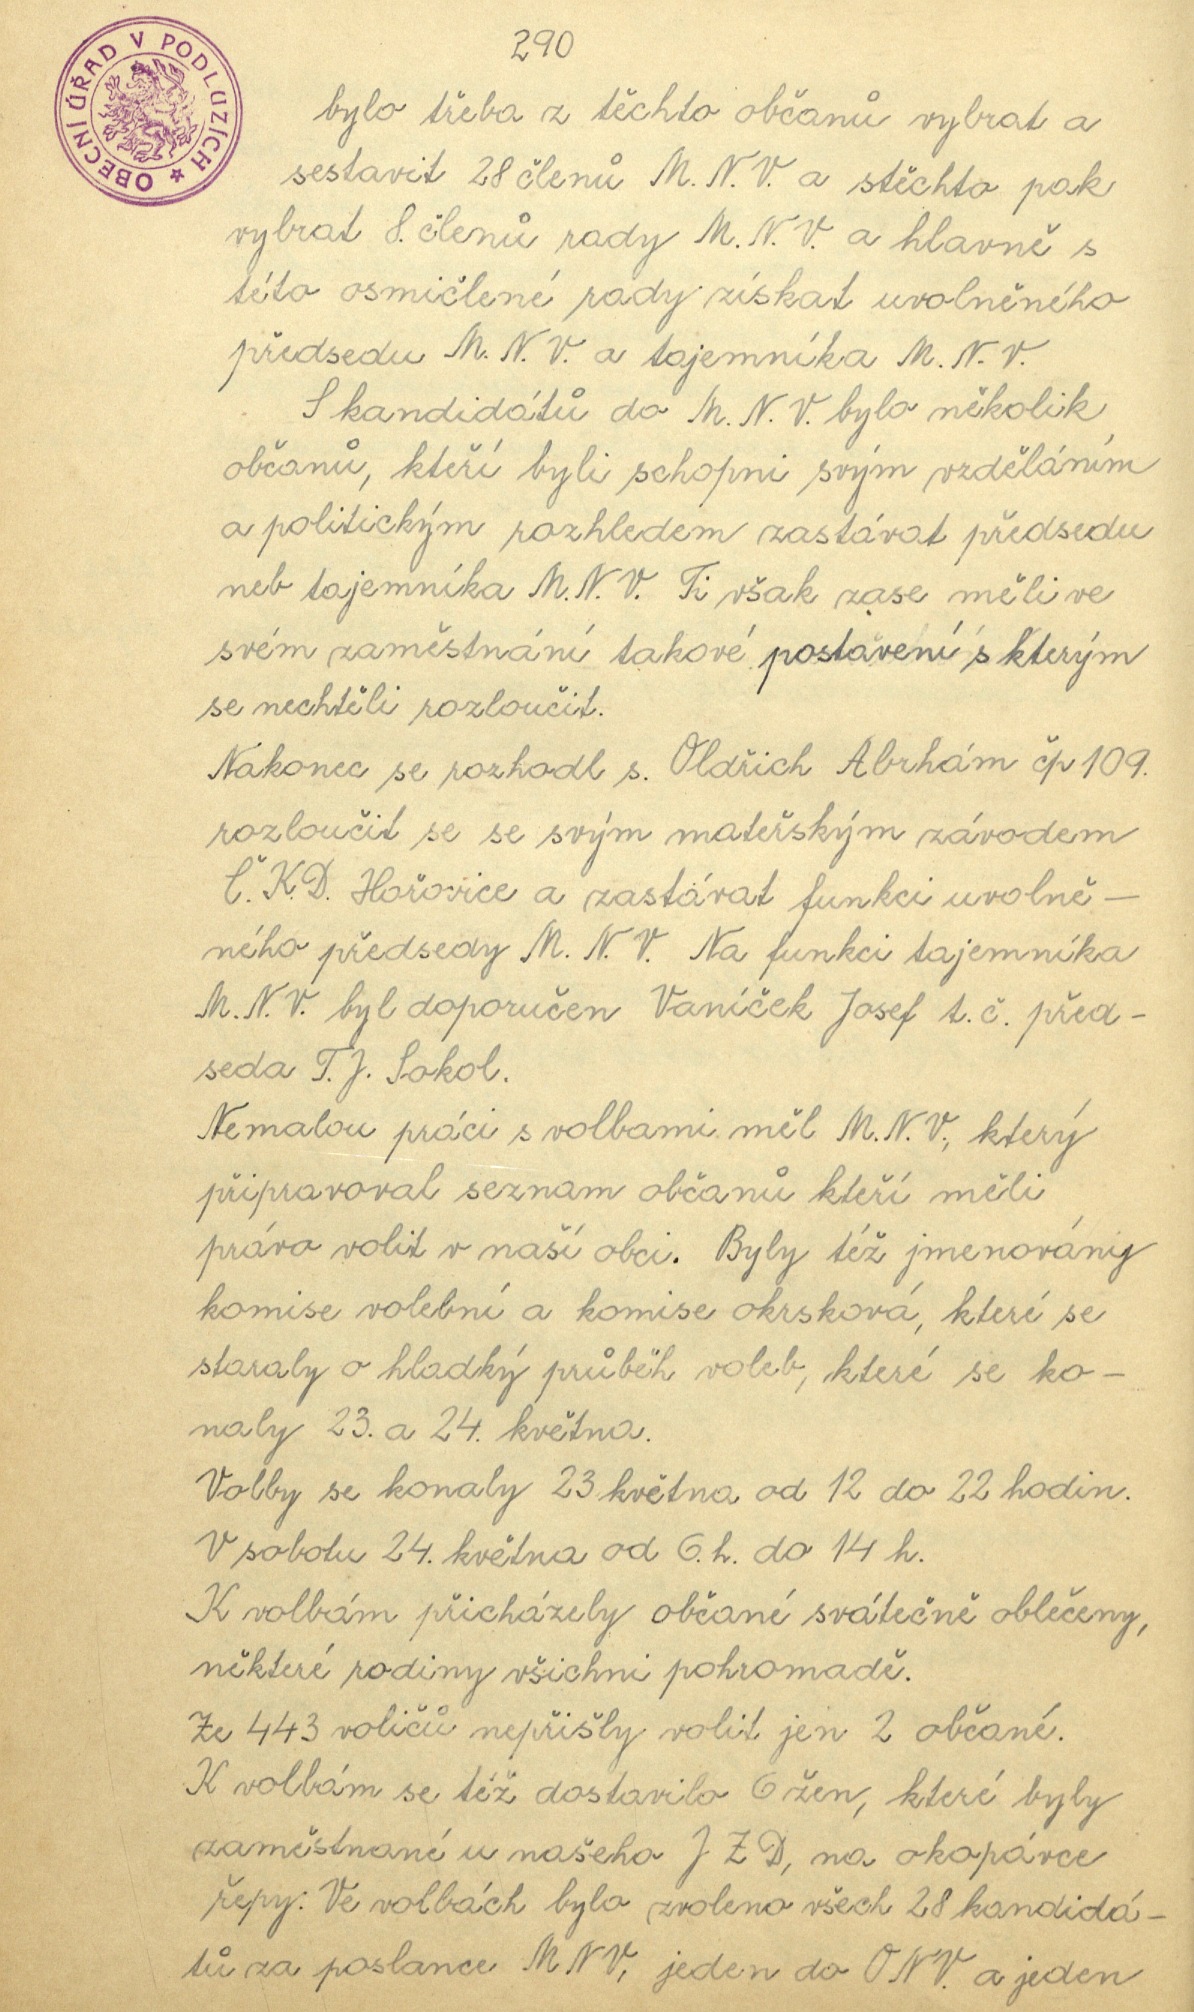 290
OBECNÍ ÚŘAD V PODLUZÍCH ★
bylo třeba z těchto občanů vybrat a
sestavit 28 členů M. N. V. a stěchto pak
vybrat 8. členů rady M. N. V. a hlavně s
této osmičlené rady získat uvolněného
předsedu M. N. V. a tajemníka M. N. V.
S kandidátů do M. N. V. bylo několik
občanů, kteří byli schopni svým vzděláním
a politickým rozhledem zastávat předsedu
neb tajemníka M. N. V. Ti však zase měli ve
svém zaměstnání takové postavení s kterým
se nechtěli rozloučit.
Nakonec se rozhodl s. Oldřich Abrhám čp 109.
rozloučit se se svým mateřským závodem
Č. K. D. Hořovice a zastávat funkci uvolně—
ného předsedy M. N. V. Na funkci tajemníka
M. N. V. byl doporučen Vaníček Josef t. č. před-
seda T. J. Sokol.
Nemalou práci s volbami měl M. N. V., který
připravoval seznam občanů kteří měli
právo volit v naší obci. Byly též jmenovány
komise volební a komise okrsková, které se
staraly o hladký průběh voleb, které se ko-
naly 23. a 24. května.
Volby se konaly 23 května od 12 do 22 hodin.
V sobotu 24. května od 6. h. do 14 h.
K volbám přicházely občané svátečně oblečeny,
některé rodiny všichni pohromadě.
Ze 443 voličů nepřišly volit jen 2 občané.
K volbám se též dostavilo 6 žen, které byly
zaměstnané u našeho J Z D, na okopávce
řepy. Ve volbách bylo zvoleno všech 28 kandidá-
tů za poslance M N V, jeden do O N V. a jeden